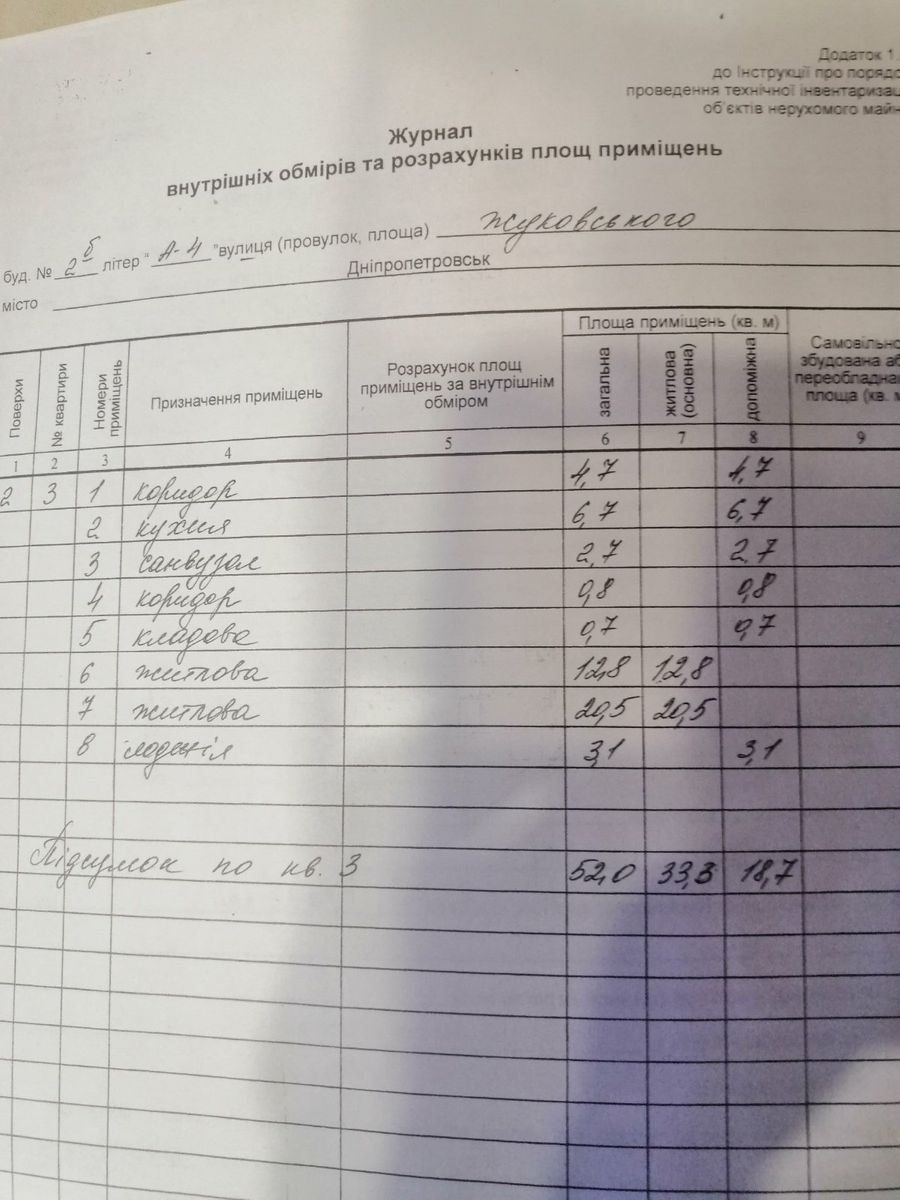 Додаток 1
до Інструкції про порядо
проведення технічної інвентаризац
об'єктів нерухомого майн
Журнал
внутрішніх обмірів та розрахунків площ приміщень
буд. № 2б літер " А-4 "вулиця (провулок, площа) Жуковського
місто Дніпропетровськ
Поверхи № квартири Номери приміщень Призначення приміщень Розрахунок площ приміщень за внутрішнім обміром Площа приміщень (кв. м) загальна житлова (основна) допоміжна Самовільно збудована аб переобладнан площа (кв. м
1 2 3 4 5 6 7 8 9
2 3 1 коридор 4,7 4,7
2 кухня 6,7 6,7
3 санвузол 2,7 2,7
4 коридор 0,8 0,8
5 кладова 0,7 0,7
6 житлова 12,8 12,8
7 житлова 20,5 20,5
8 лоджія 3,1 3,1
Підсумок по кв. 3 52,0 33,3 18,7